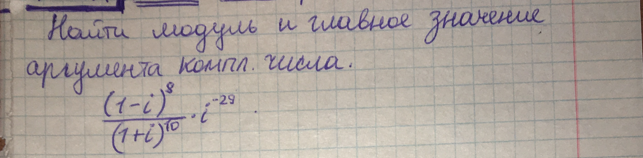 Найти модуль и главное значение
аргумента компл. числа.
(1-i)^8
/(1+i)^10 · i^-29